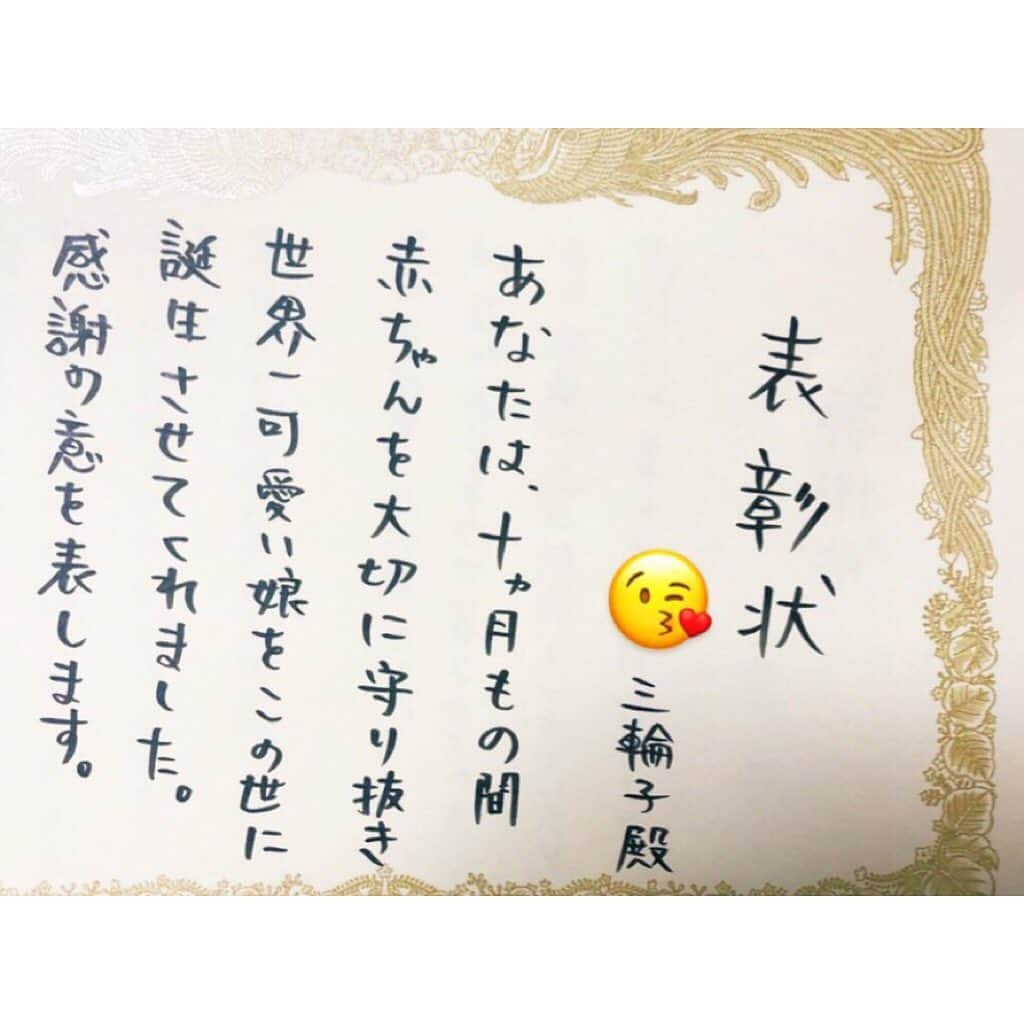 表彰状
三輪子殿
あなたは、十ヵ月もの間
赤ちゃんを大切に守り抜き
世界一可愛い娘をこの世に
誕生させてくれました。
感謝の意を表します。